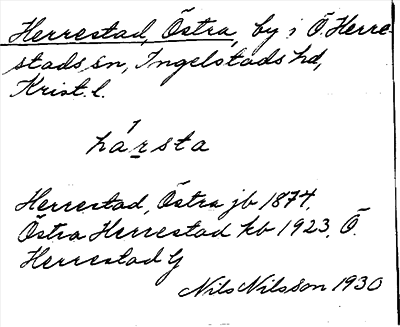 Herrestad, Östra, by i Ö Herre-
stads sn, Ingelstads hd,
Krist. l.
hársta
Herrestad, Östra jb 1874.
Östra Herrestad kb 1923, Ö.
Herrestad G
Nils Nilsson 1930